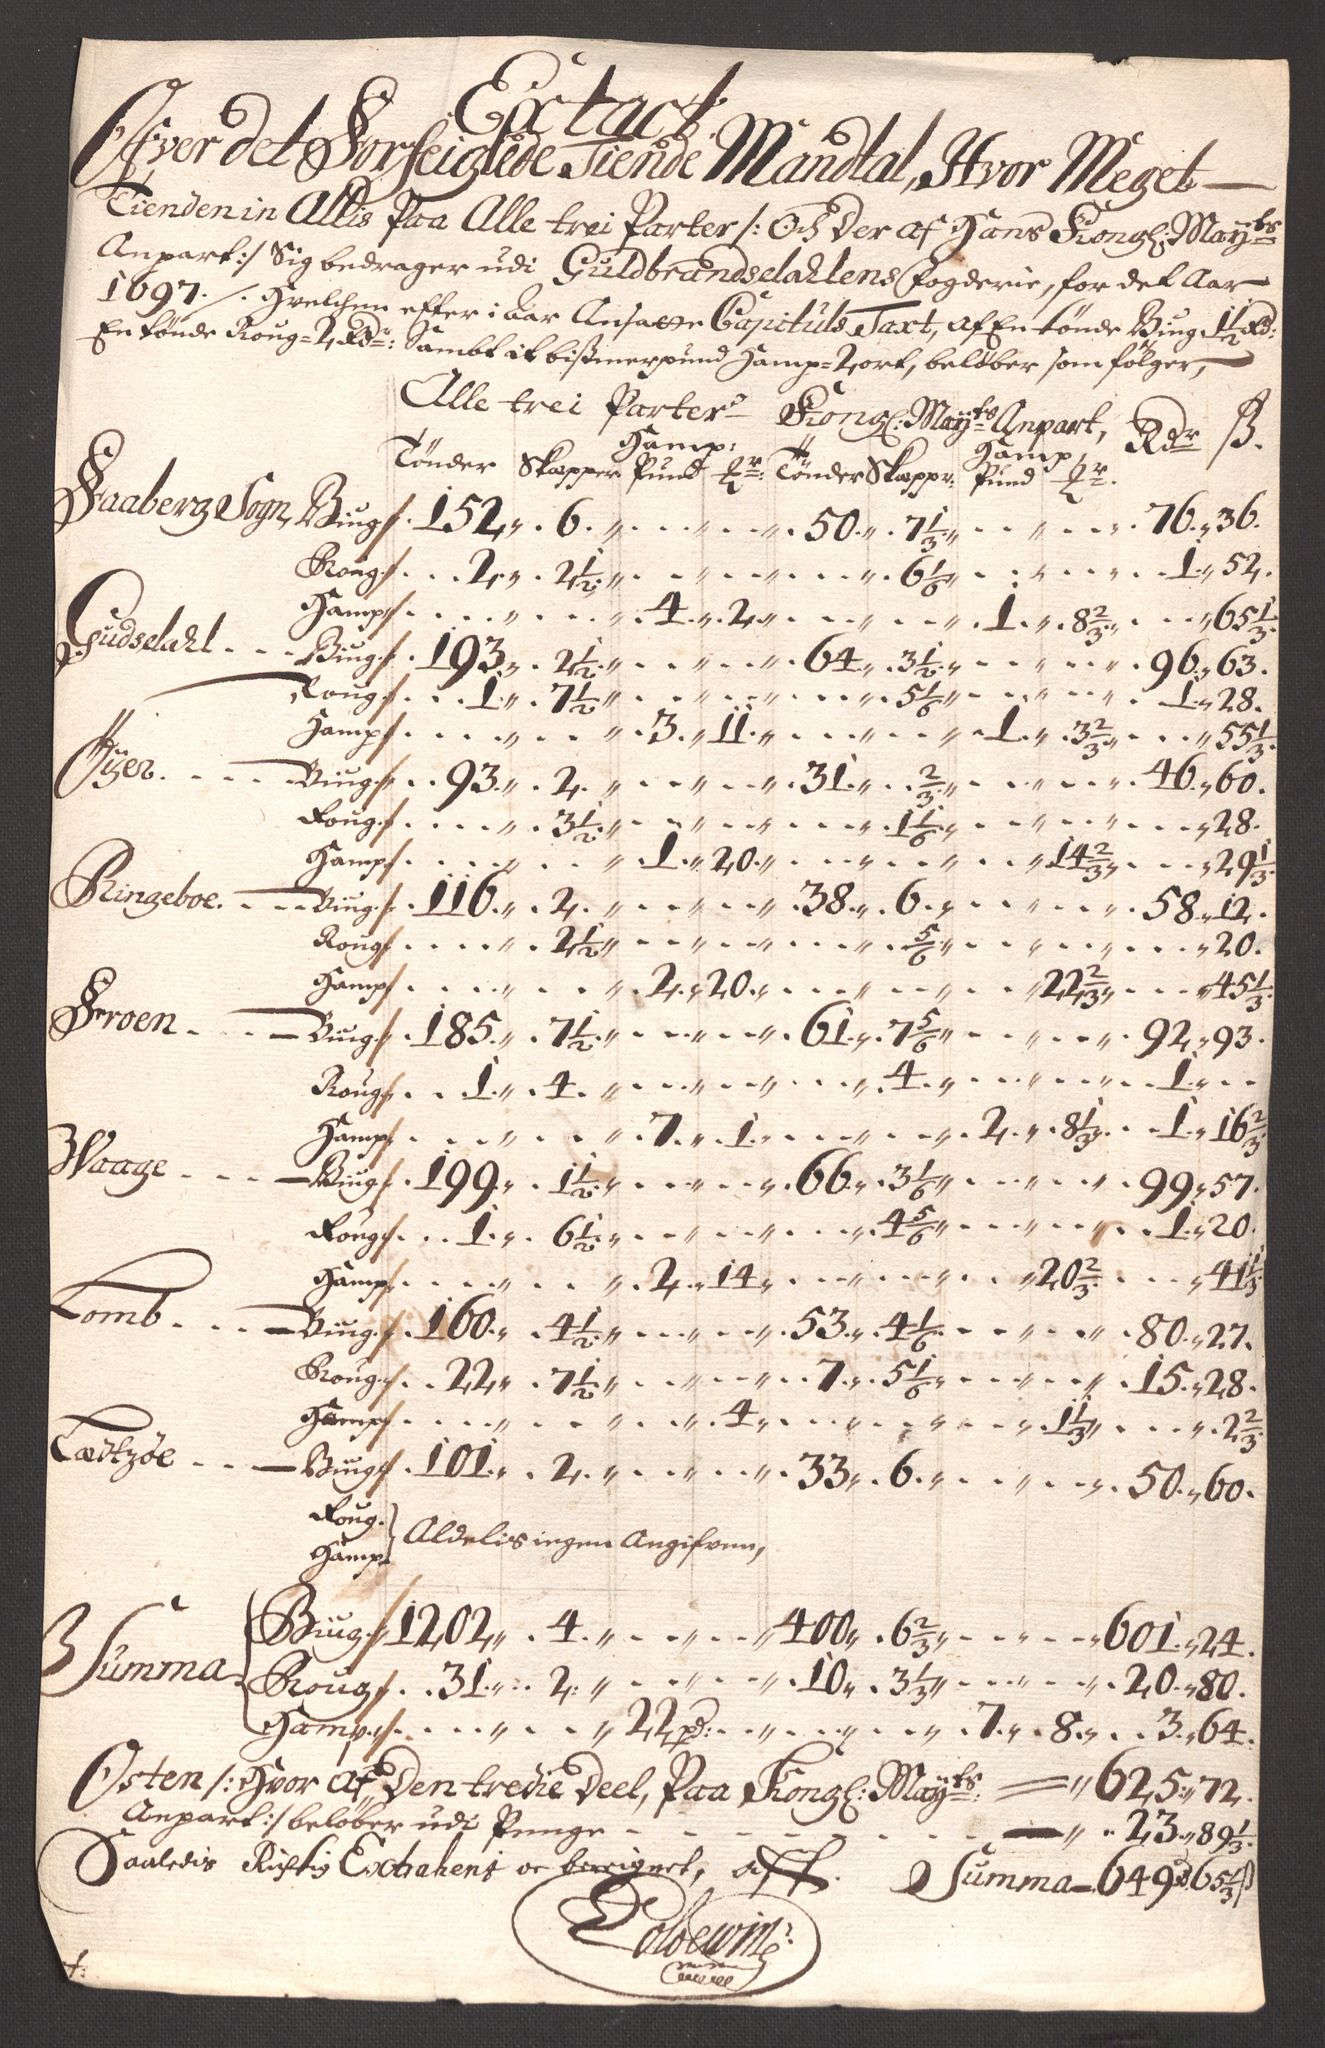 Extact
Ofver det Forseiglede Tiende Mandtal, Hvor Meget
Tienden in Allis Paa Alle trei Parter /: Och Der af Hans Kongl: Mayts
Anpart :/ Sig bedrager udi Guldbrandsdahlens fogderie, for det Aar
1697. /. Hvelchen efter i aar Ansatte Capituls Taxt, af En tønde Biug 1½ Rdr:
En tønde Roug = 2 Rdr: Sambt it bismerpund Hamp = 2 ort, beløber som følger,
Alle trei Parter Kongl: Mayts Anpart, Rdr ß.
Hamp: Hamp,
Tønder Skepper Pund qr: Tønder Skeppr: Pund qr.
Faaberg Sogn, Biug /. 152 „ 6 „ 50 „ 7⅓ „ 76 „ 36.
Roug /. 2 „ 2½ „ 6⅙ „ 1 „ 52.
Hamp /. 4 „ 2 „ 1 „ 8⅔ „ 65⅓
Gudsdahl Biug /. 193 „ 2½ „ 64 „ 3½ „ 96 „ 63.
Roug /. 1 „ 7½ „ 5⅙ „ 1 „ 28.
Hamp /. 3 „ 11 „ 1 „ 3⅔ „ 55⅓
Øyer. Biug /. 93 „ 2 „ 31 „ ⅔ „ 46 „ 60.
Roug /. 3½ „ 1⅙ „ 28.
Hamp /. 1 „ 20 „ 14⅔ „ 29⅓
Ringeboe. Biug /. 116 „ 2 „ 38 „ 6 „ 58 „ 12.
Roug /. 2½ „ ⅚ „ 20.
Hamp /. 2 „ 20 „ 22⅔ „ 45⅓
Froen Biug /. 185 „ 7½ „ 61 „ 7⅚ „ 92 „ 93.
Roug /. 1 „ 4 „ 4 „ 1 „
Hamp /. 7 „ 1 „ 2 „ 8⅓ „ 1 „ 16⅔
Waage Biug /. 199 „ 1½ „ 66 „ 3⅙ „ 99 „ 57.
Roug /. 1 „ 6½ „ 4⅚ „ 1 „ 20.
Hamp /. 2 „ 14 „ 20⅔ „ 41⅓
Lomb Biug /. 160 „ 4½ „ 53 „ 4⅙ „ 80 „ 27.
Roug /. 22 „ 7½ „ 7 „ 5⅙ „ 15 „ 28.
Hamp /. 4 „ 1⅓ „ 2⅔
Biug /. 101 „ 2 „ 33 „ 6 „ 50 „ 60.
Roug.
Aldelis ingen Angifven,
Hamp
Summa Biug /. 1202 „ 4 „ 400 „ 6⅔ „ 601 „ 24.
Roug /. 31 „ 2 „ 10 „ 3⅓ „ 20 „ 80.
Hamp /. 22 pd: „ 7 „ 8 „ 3 „ 64.
Osten /: Hvor af Den tredie Deel, Paa Kongl: Mayts: „ 625 „ 72.
Anpart :/ beløber udi Penge „ 23 „ 89⅓
Saaledis Rigtig Extrahent oc beregnet, aff. Summa 649 „ 65⅓ ß